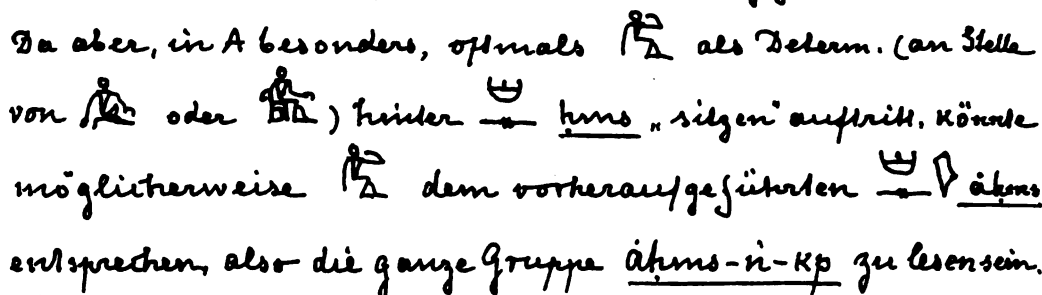 Da aber, in A besonders, oftmals 𓀉 als Determ. (an Stelle
von oder ) hinter ḥms „sitzen" auftritt, könnte
möglicherweise dem vorheraufgeführten ȧḥms
entsprechen, also die ganze Gruppe ȧḥms-n-kp zu lesen sein.